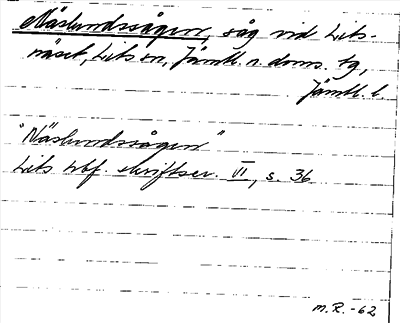 Näslundssågen, såg vid Lits-
näset, Lits sn, Jämtl. n. doms. tg,
Jämtl. l.
"Näslundssågen"
Lits hbf. skriftser. VI, s. 36
M.R.-62